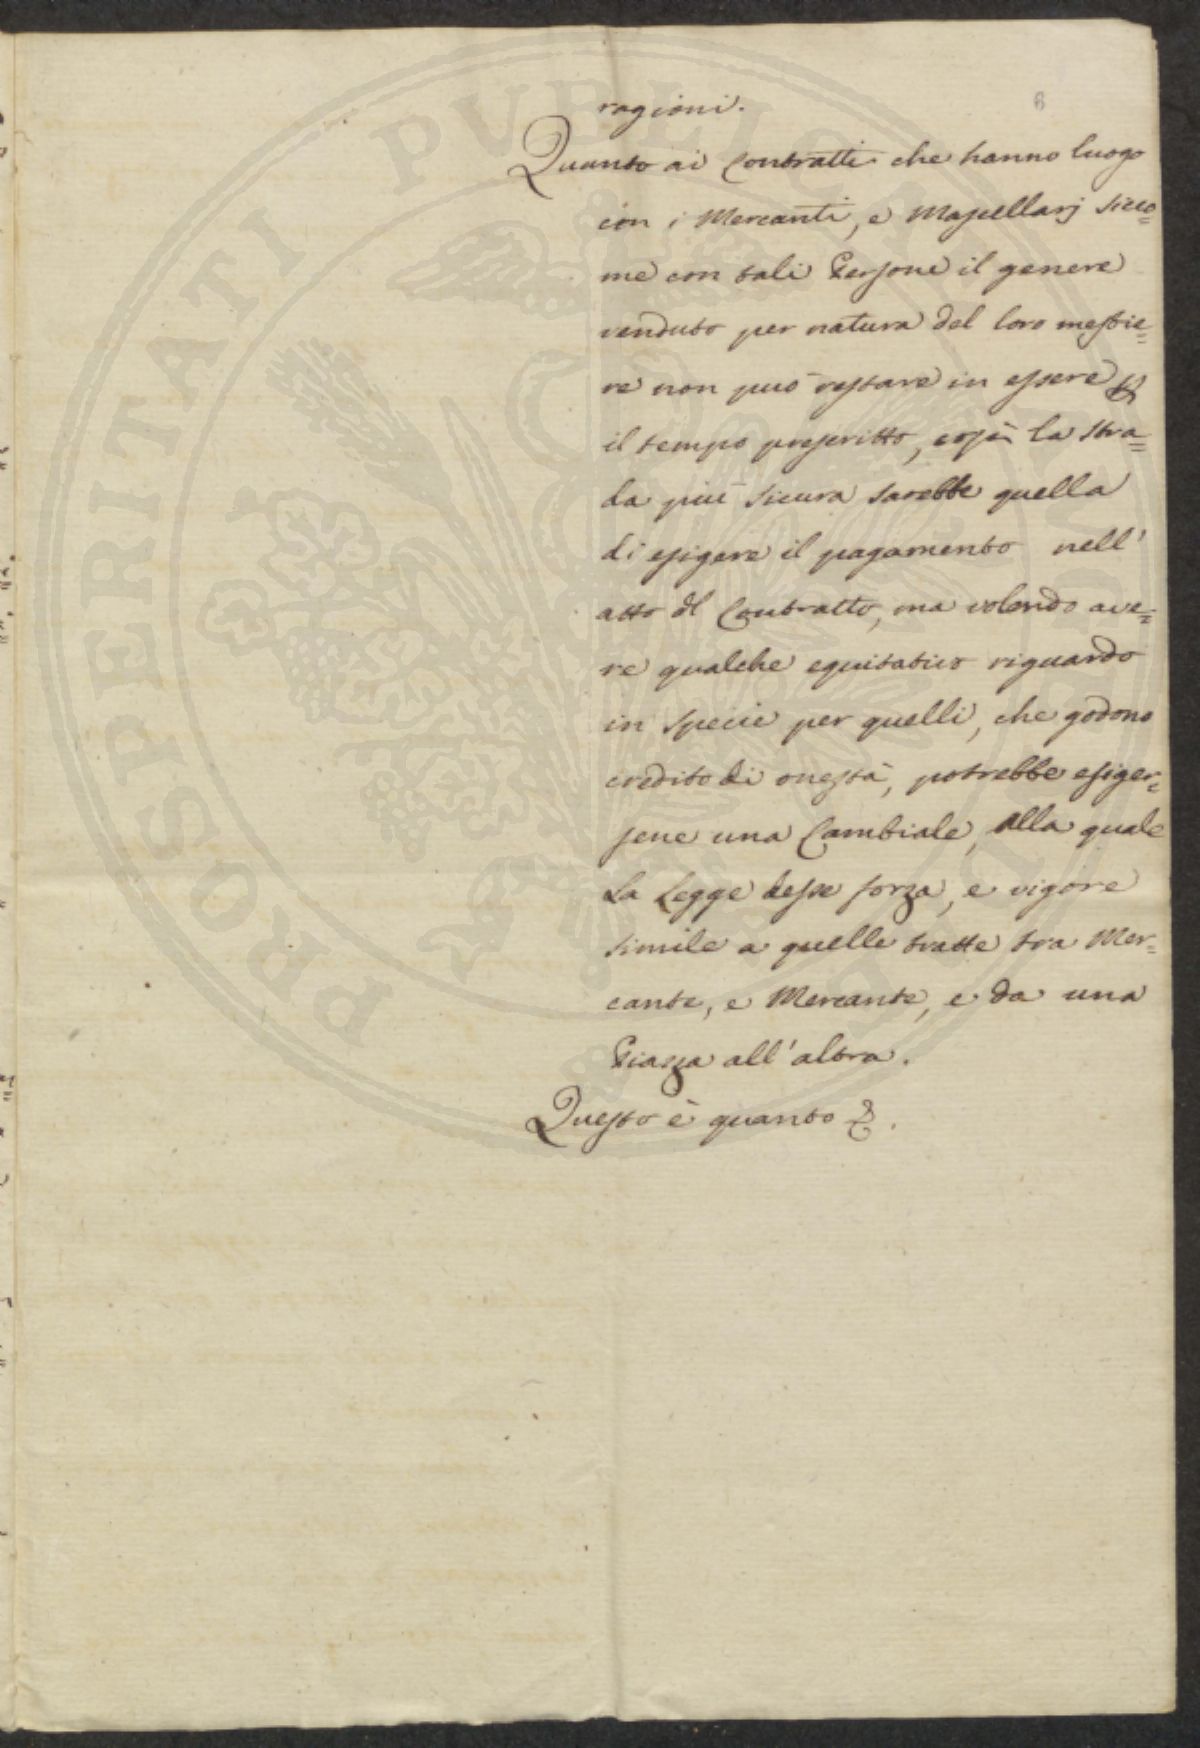 6
ragioni.
Quanto ai Contratti che hanno luogo
con i Mercanti, e Macellarj sicco=
me con tali Persone il genere
venduto per natura del loro mestie=
re non può restare in essere p
il tempo prescritto, così la stra=
da più sicura sarebbe quella
di esigere il pagamento nell'
atto del Contratto, ma volendo ave=
re qualche equitativo riguardo
in specie per quelli, che godono
credito di onestà, potrebbe esiger=
sene una Cambiale, alla quale
La Legge desse forza, e vigore
simile a quelle tratte tra Mer=
cante, e Mercante, e da una
Piazza all'altra.
Questo è quanto &.
PROSPERITATI PUBLICAE